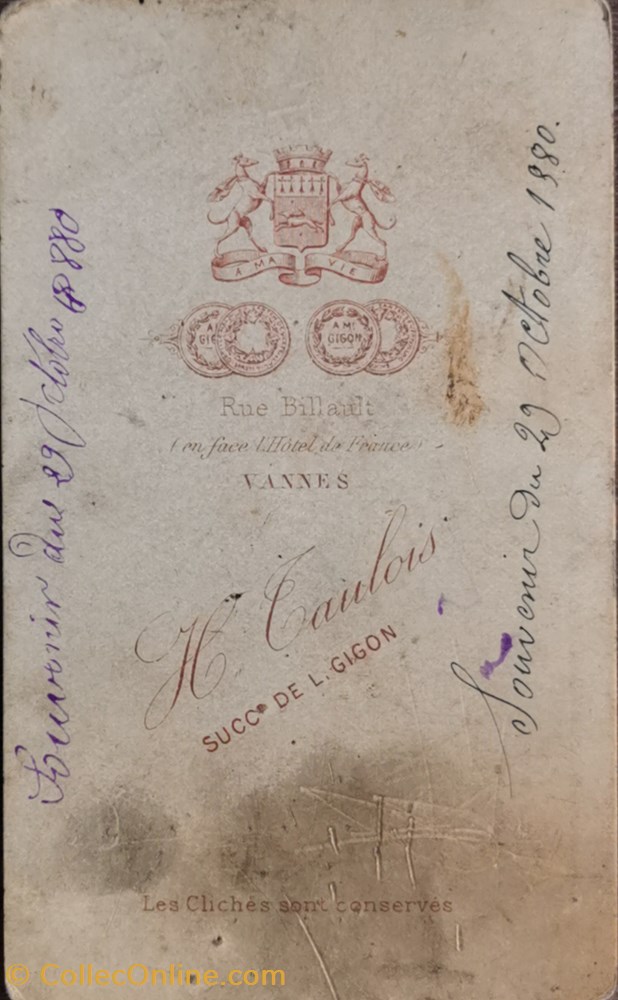 A MA VIE
A
GIG
A Mr
GIGON
Rue Billault
(en face l'Hôtel de France)
VANNES
H. Taulois
SUCCR DE L. GIGON
Les Clichés sont conservés
Souvenir du 29 Octobre 1880
Souvenir du 29 Octobre 1880.
© CollecOnline.com